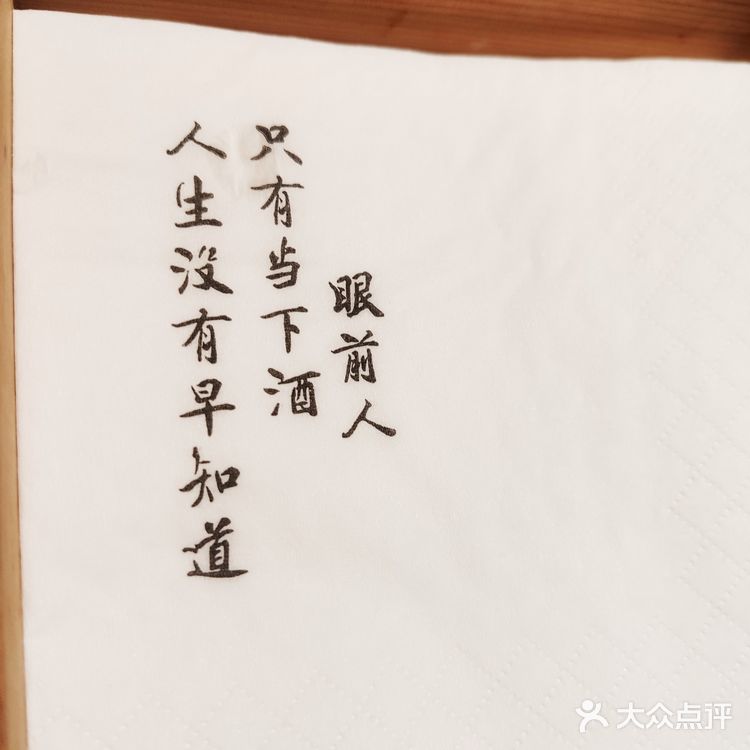 人生没有早知道
只有当下酒
眼前人
大众点评